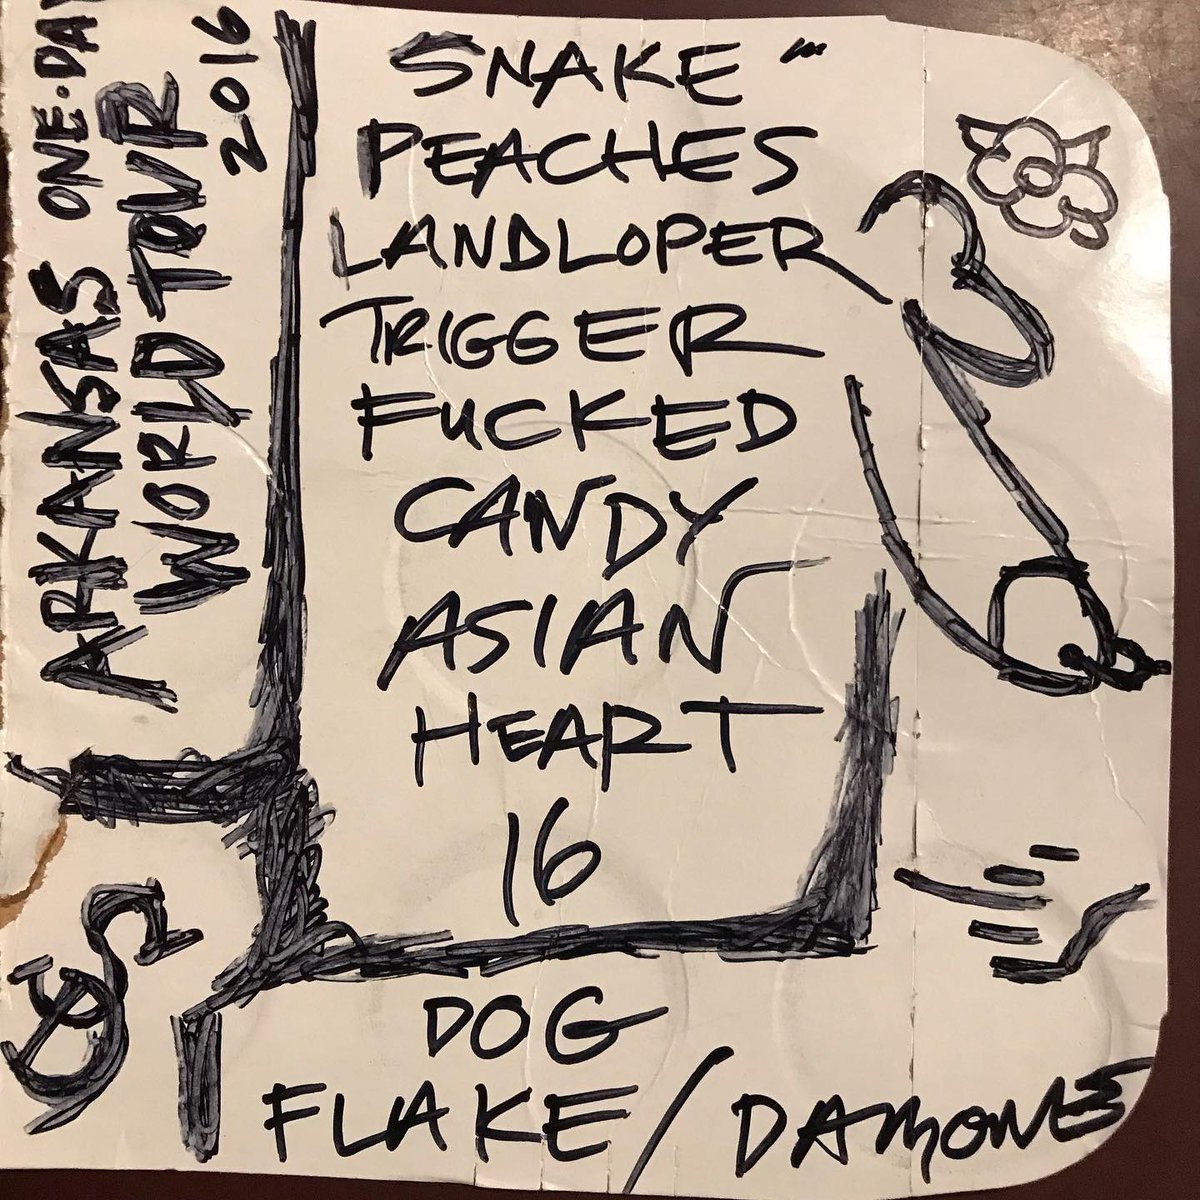 ARKANSAS ONE·DAY
WORLD TOUR
2016
SNAKE
PEACHES
LANDLOPER
TRIGGER
FUCKED
CANDY
ASIAN
HEART
16
DOG
FLAKE / DAMONE